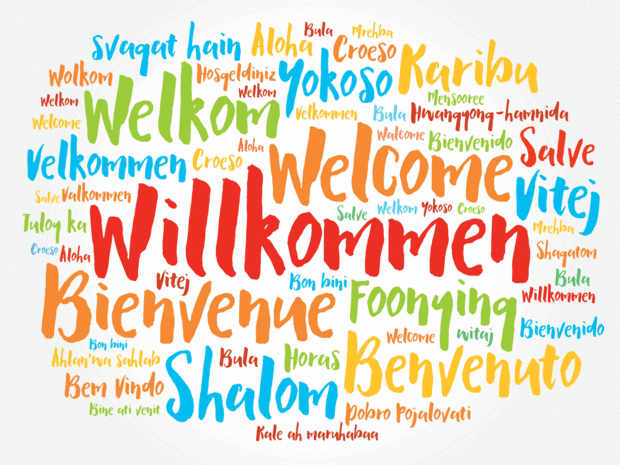 Bula
Mrehba
svagat hain
Aloha
Croeso
Wolkom
Hosgeldiniz
Yokoso
Karibu
Welkom
Welkom
Welkom
Velkommen
Bula
Mensooree
Hwangyong-hamnida
Welcome
Walcome
Bienvenido
Salve
Velkommen
Croeso
Aloha
Welcome
Vitej
Salve
Valkommen
Willkommen
Salve
Welkom
Yokoso
Croeso
Tuloy ka
Mrehba
Croeso
Aloha
Shagatom
Vitej
Bon bini
Bula
Bienvenue
Foonying
Willkommen
Welcome
witaj
Bienvenido
Bon bini
Ahlan'wa sahlab
Bula
Horas
Benvenuto
Bem Vindo
Shalom
Bine ati venit
Dobro Pojalovati
Kale ah maruhabaa